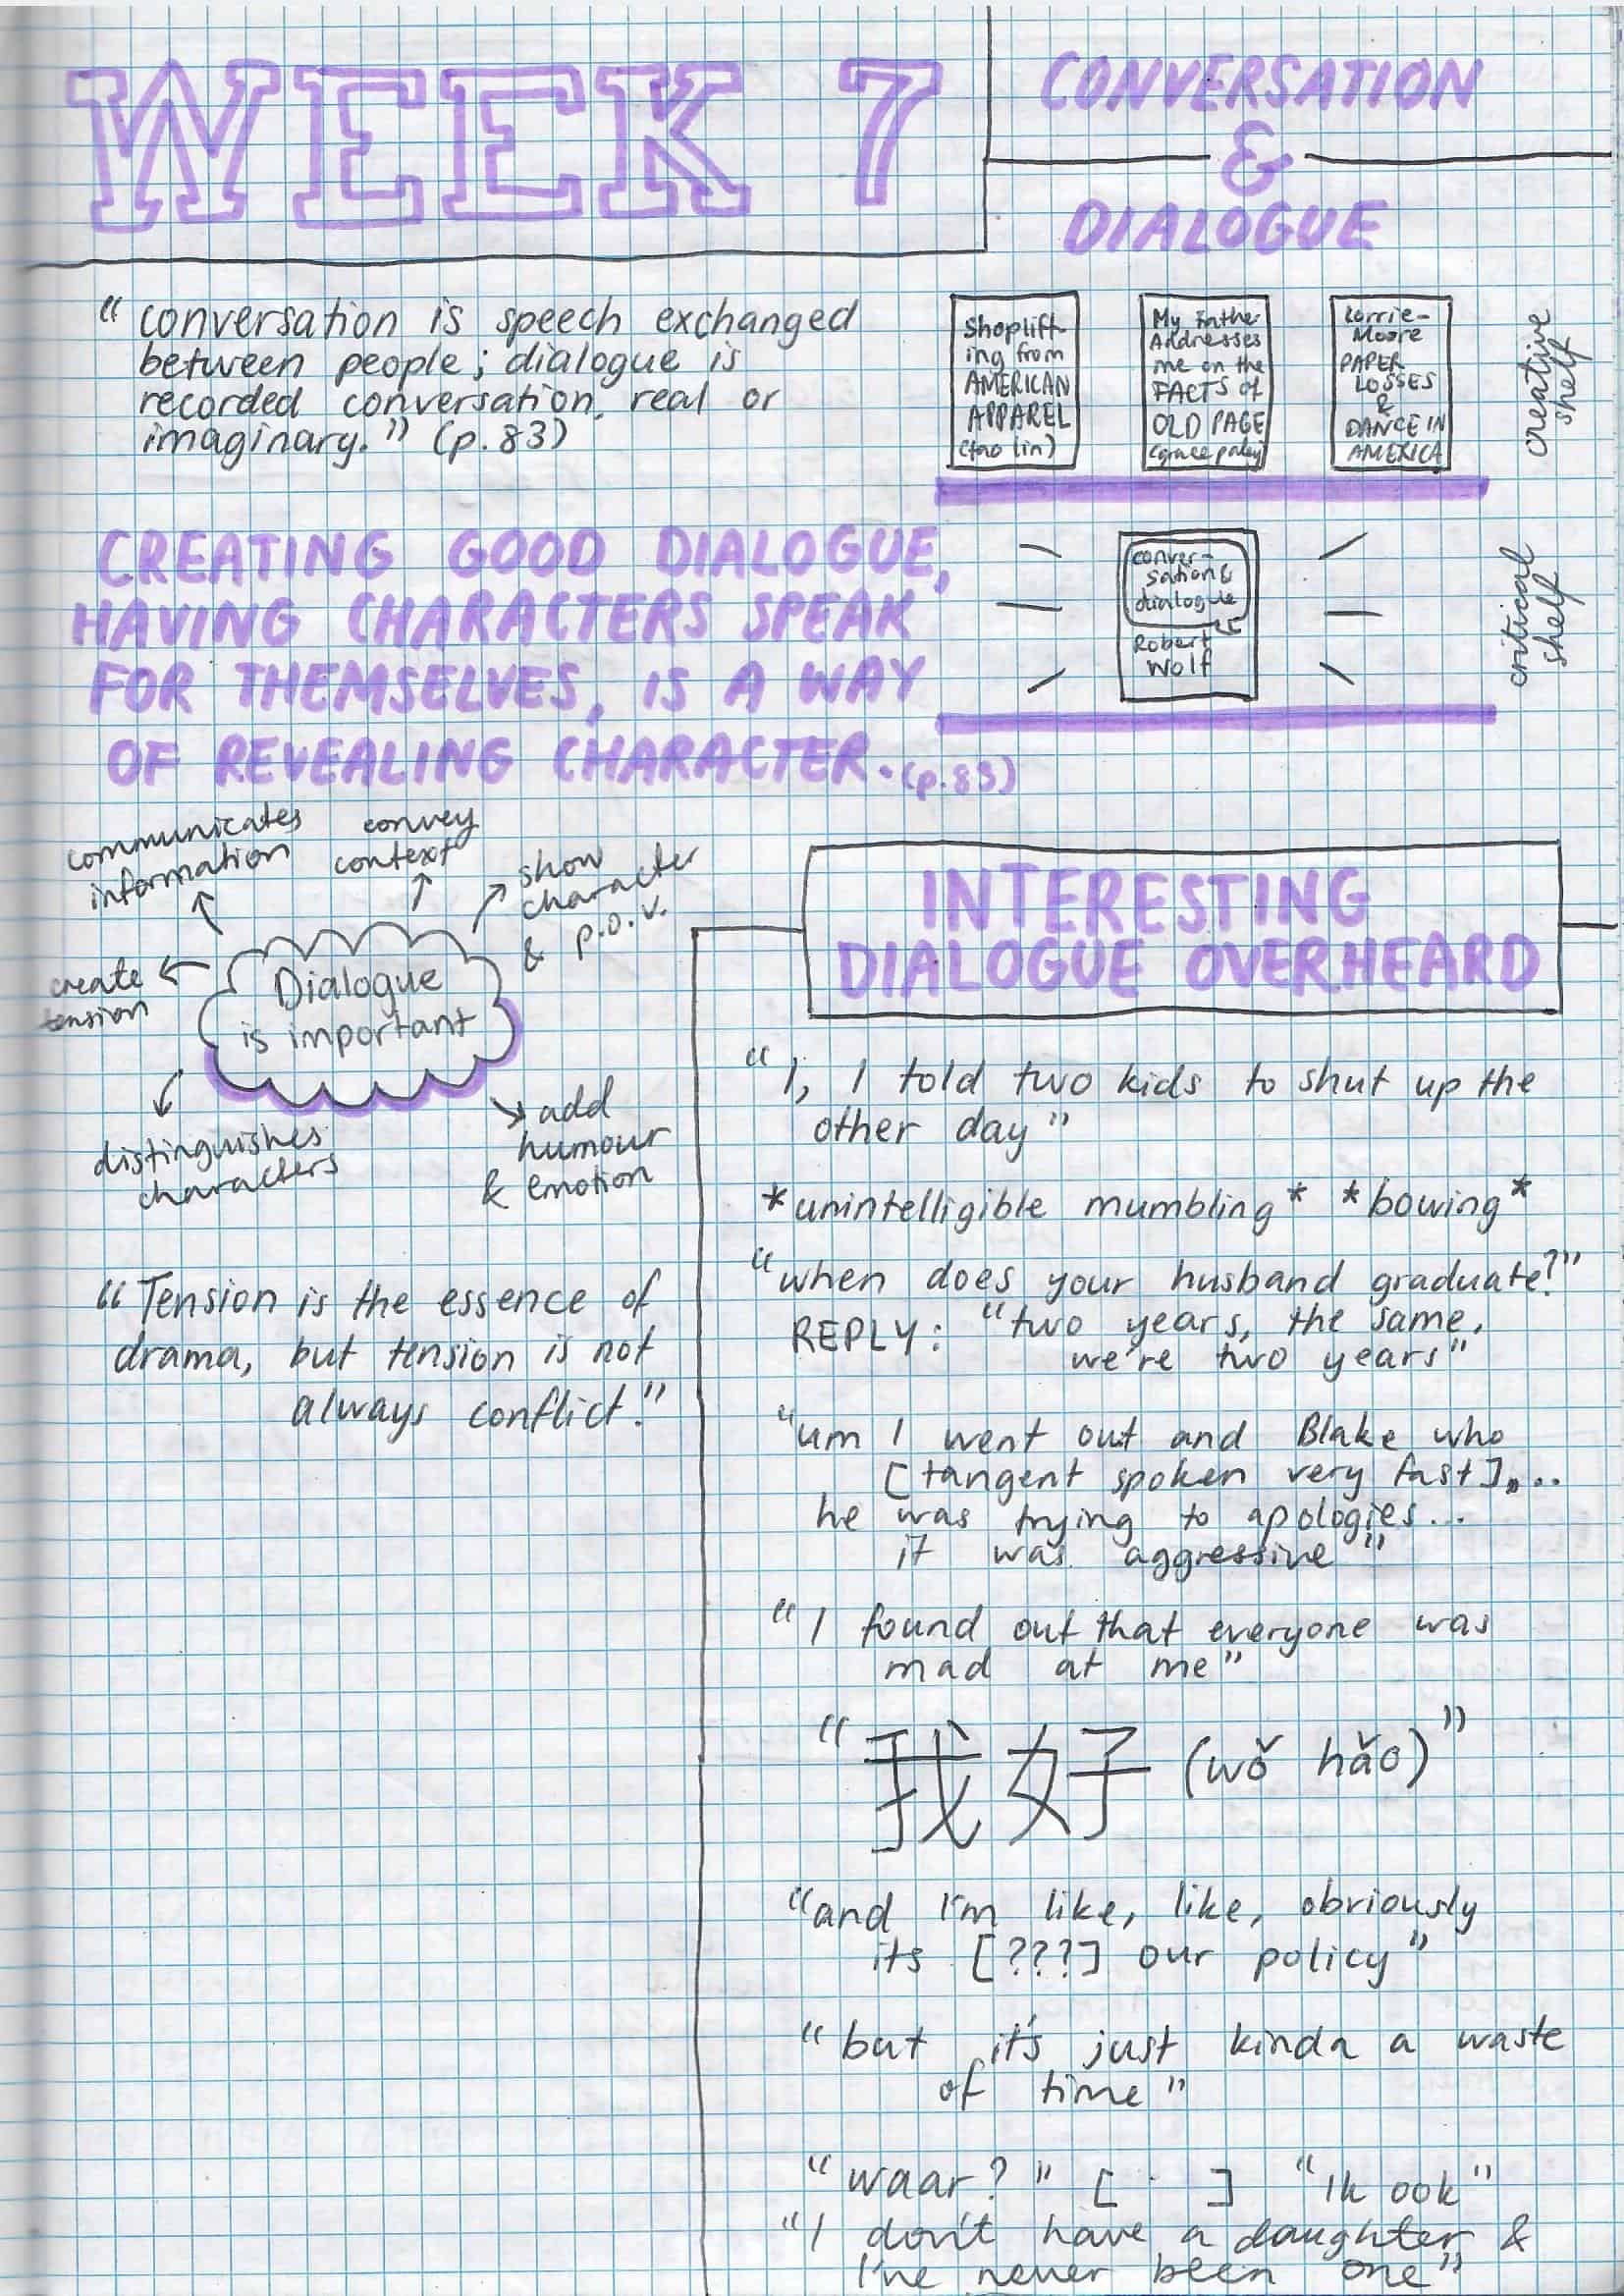 WEEK 7
CONVERSATION
&
DIALOGUE
"conversation is speech exchanged
between people; dialogue is
recorded conversation, real or
imaginary." (p.83)
Shoplift-
ing from
AMERICAN
APPAREL
(tao lin)
My Fathe
Addresses
me on the
FACTS of
OLD PAGE
(grace paley)
Lorrie-
Moore
PAPER
LOSSES
&
DANCE IN
AMERICA
creative
shelf
CREATING GOOD DIALOGUE,
HAVING CHARACTERS SPEAK
FOR THEMSELVES, IS A WAY
OF REVEALING CHARACTER. (p.83)
conver-
sation &
dialogue
Robert
Wolf
critical
shelf
communicates
information
convey
context
show
character
& p.o.v.
create
tension
Dialogue
is important
distinguishes
characters
add
humour
& emotion
"Tension is the essence of
drama, but tension is not
always conflict."
INTERESTING
DIALOGUE OVERHEARD
"I, I told two kids to shut up the
other day"
*unintelligible mumbling* *bowing*
"when does your husband graduate?"
REPLY: "two years, the same,
we're two years"
"um I went out and Blake who
[tangent spoken very fast],...
he was trying to apologies...
it was aggressive"
"I found out that everyone was
mad at me"
"我好 (wǒ hǎo)"
"and I'm like, like, obviously
its [???] our policy"
"but it's just kinda a waste
of time"
"waar?" [ ] "Ik ook"
"I don't have a daughter &
I've never been one"